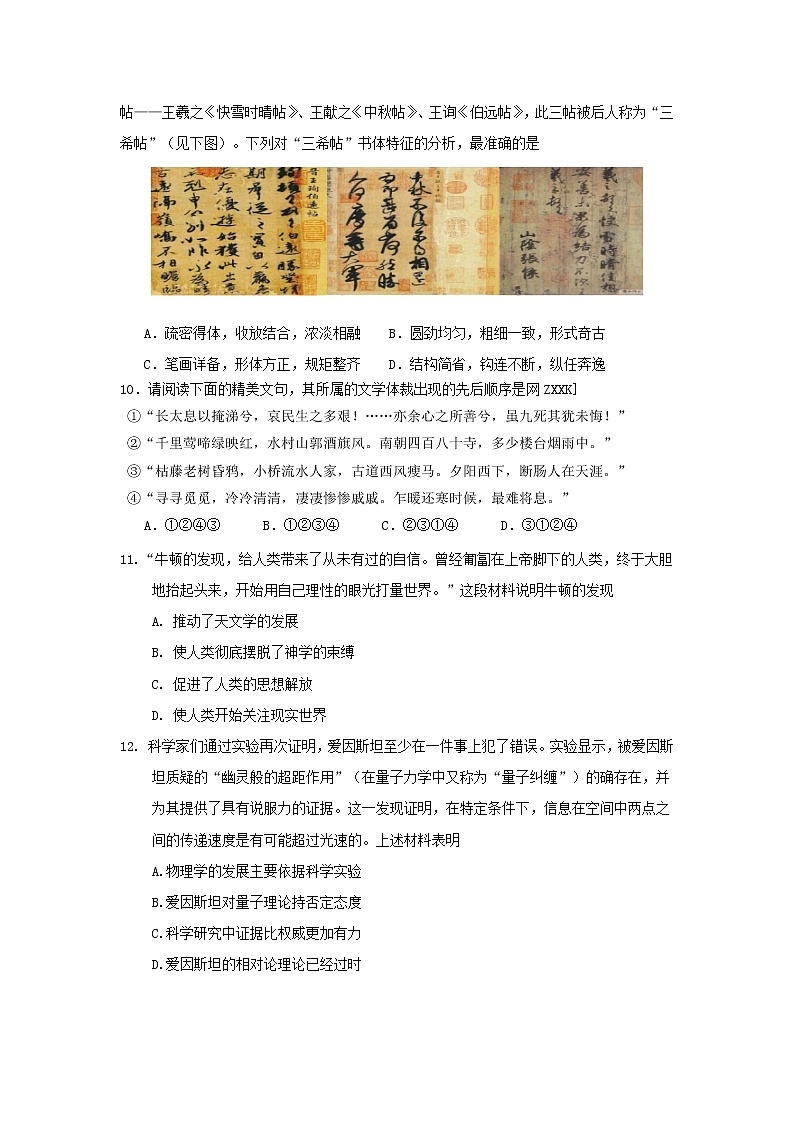 帖——王羲之《快雪时晴帖》、王献之《中秋帖》、王询《伯远帖》，此三帖被后人称为“三
希帖”（见下图）。下列对“三希帖”书体特征的分析，最准确的是
A．疏密得体，收放结合，浓淡相融 B．圆劲均匀，粗细一致，形式奇古
C．笔画详备，形体方正，规矩整齐 D．结构简省，钩连不断，纵任奔逸
10．请阅读下面的精美文句，其所属的文学体裁出现的先后顺序是网 ZXXK]
①“长太息以掩涕兮，哀民生之多艰！……亦余心之所善兮，虽九死其犹未悔！”
②“千里莺啼绿映红，水村山郭酒旗风。南朝四百八十寺，多少楼台烟雨中。”
③“枯藤老树昏鸦，小桥流水人家，古道西风瘦马。夕阳西下，断肠人在天涯。”
④“寻寻觅觅，冷冷清清，凄凄惨惨戚戚。乍暖还寒时候，最难将息。”
A．①②④③ B．①②③④ C．②③①④ D．③①②④
11．“牛顿的发现，给人类带来了从未有过的自信。曾经匍匐在上帝脚下的人类，终于大胆
地抬起头来，开始用自己理性的眼光打量世界。”这段材料说明牛顿的发现
A．推动了天文学的发展
B．使人类彻底摆脱了神学的束缚
C．促进了人类的思想解放
D．使人类开始关注现实世界
12．科学家们通过实验再次证明，爱因斯坦至少在一件事上犯了错误。实验显示，被爱因斯
坦质疑的“幽灵般的超距作用”（在量子力学中又称为“量子纠缠”）的确存在，并
为其提供了具有说服力的证据。这一发现证明，在特定条件下，信息在空间中两点之
间的传递速度是有可能超过光速的。上述材料表明
A.物理学的发展主要依据科学实验
B.爱因斯坦对量子理论持否定态度
C.科学研究中证据比权威更加有力
D.爱因斯坦的相对论理论已经过时